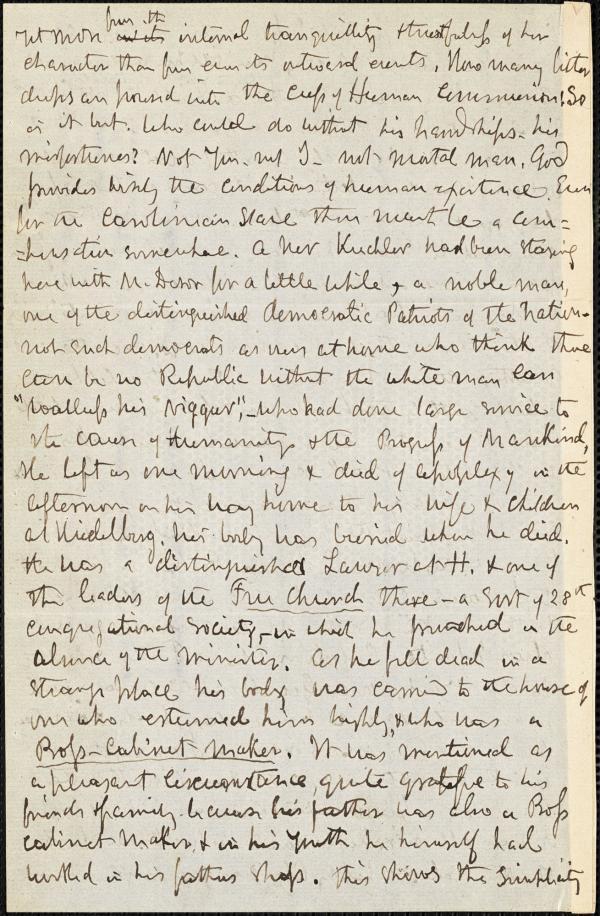 yet more from the internal tranquillity & trustfulness of her
character than from even its outward events. How many bitter
drops are poured into the Cup of Human Communion! So
is it but. Who could do without his hardships – his
misfortunes? Not You – not I – not mortal man. God
provides wisely the Conditions of human existence. Even
for the Carolinian Slave there must be a com=
=pensation somewhere. A Herr Küchler had been staying
here with M. Desor for a little while, a noble man,
one of the distinguished democratic Patriots of the nation –
not such democrats as ours at home who think there
Can be no Republic without the white man Can
"wallups his Niggur", – who had done large service to
the cause of Humanity & the Progress of Mankind,
He left us one morning & died of apoplexy in the
afternoon on his way home to his Wife & Children
at Hiedelberg. his body was buried where he died.
He was a distinguished Lawyer at H. & one of
the leaders of the Free Church there – a Sort of 28th
Congregational Society, – in which he preached in the
absence of the Minister. As he fell dead in a
strange place his body was carried to the house of
one who esteemed him highly, & who was a
Boss-Cabinet maker. It was mentioned as
a pleasant Circumstance, quite grateful to his
friends & family because his father was also a Boss
cabinet maker, & in his Youth he himself had
worked in his fathers shop. This shows the Simplicity